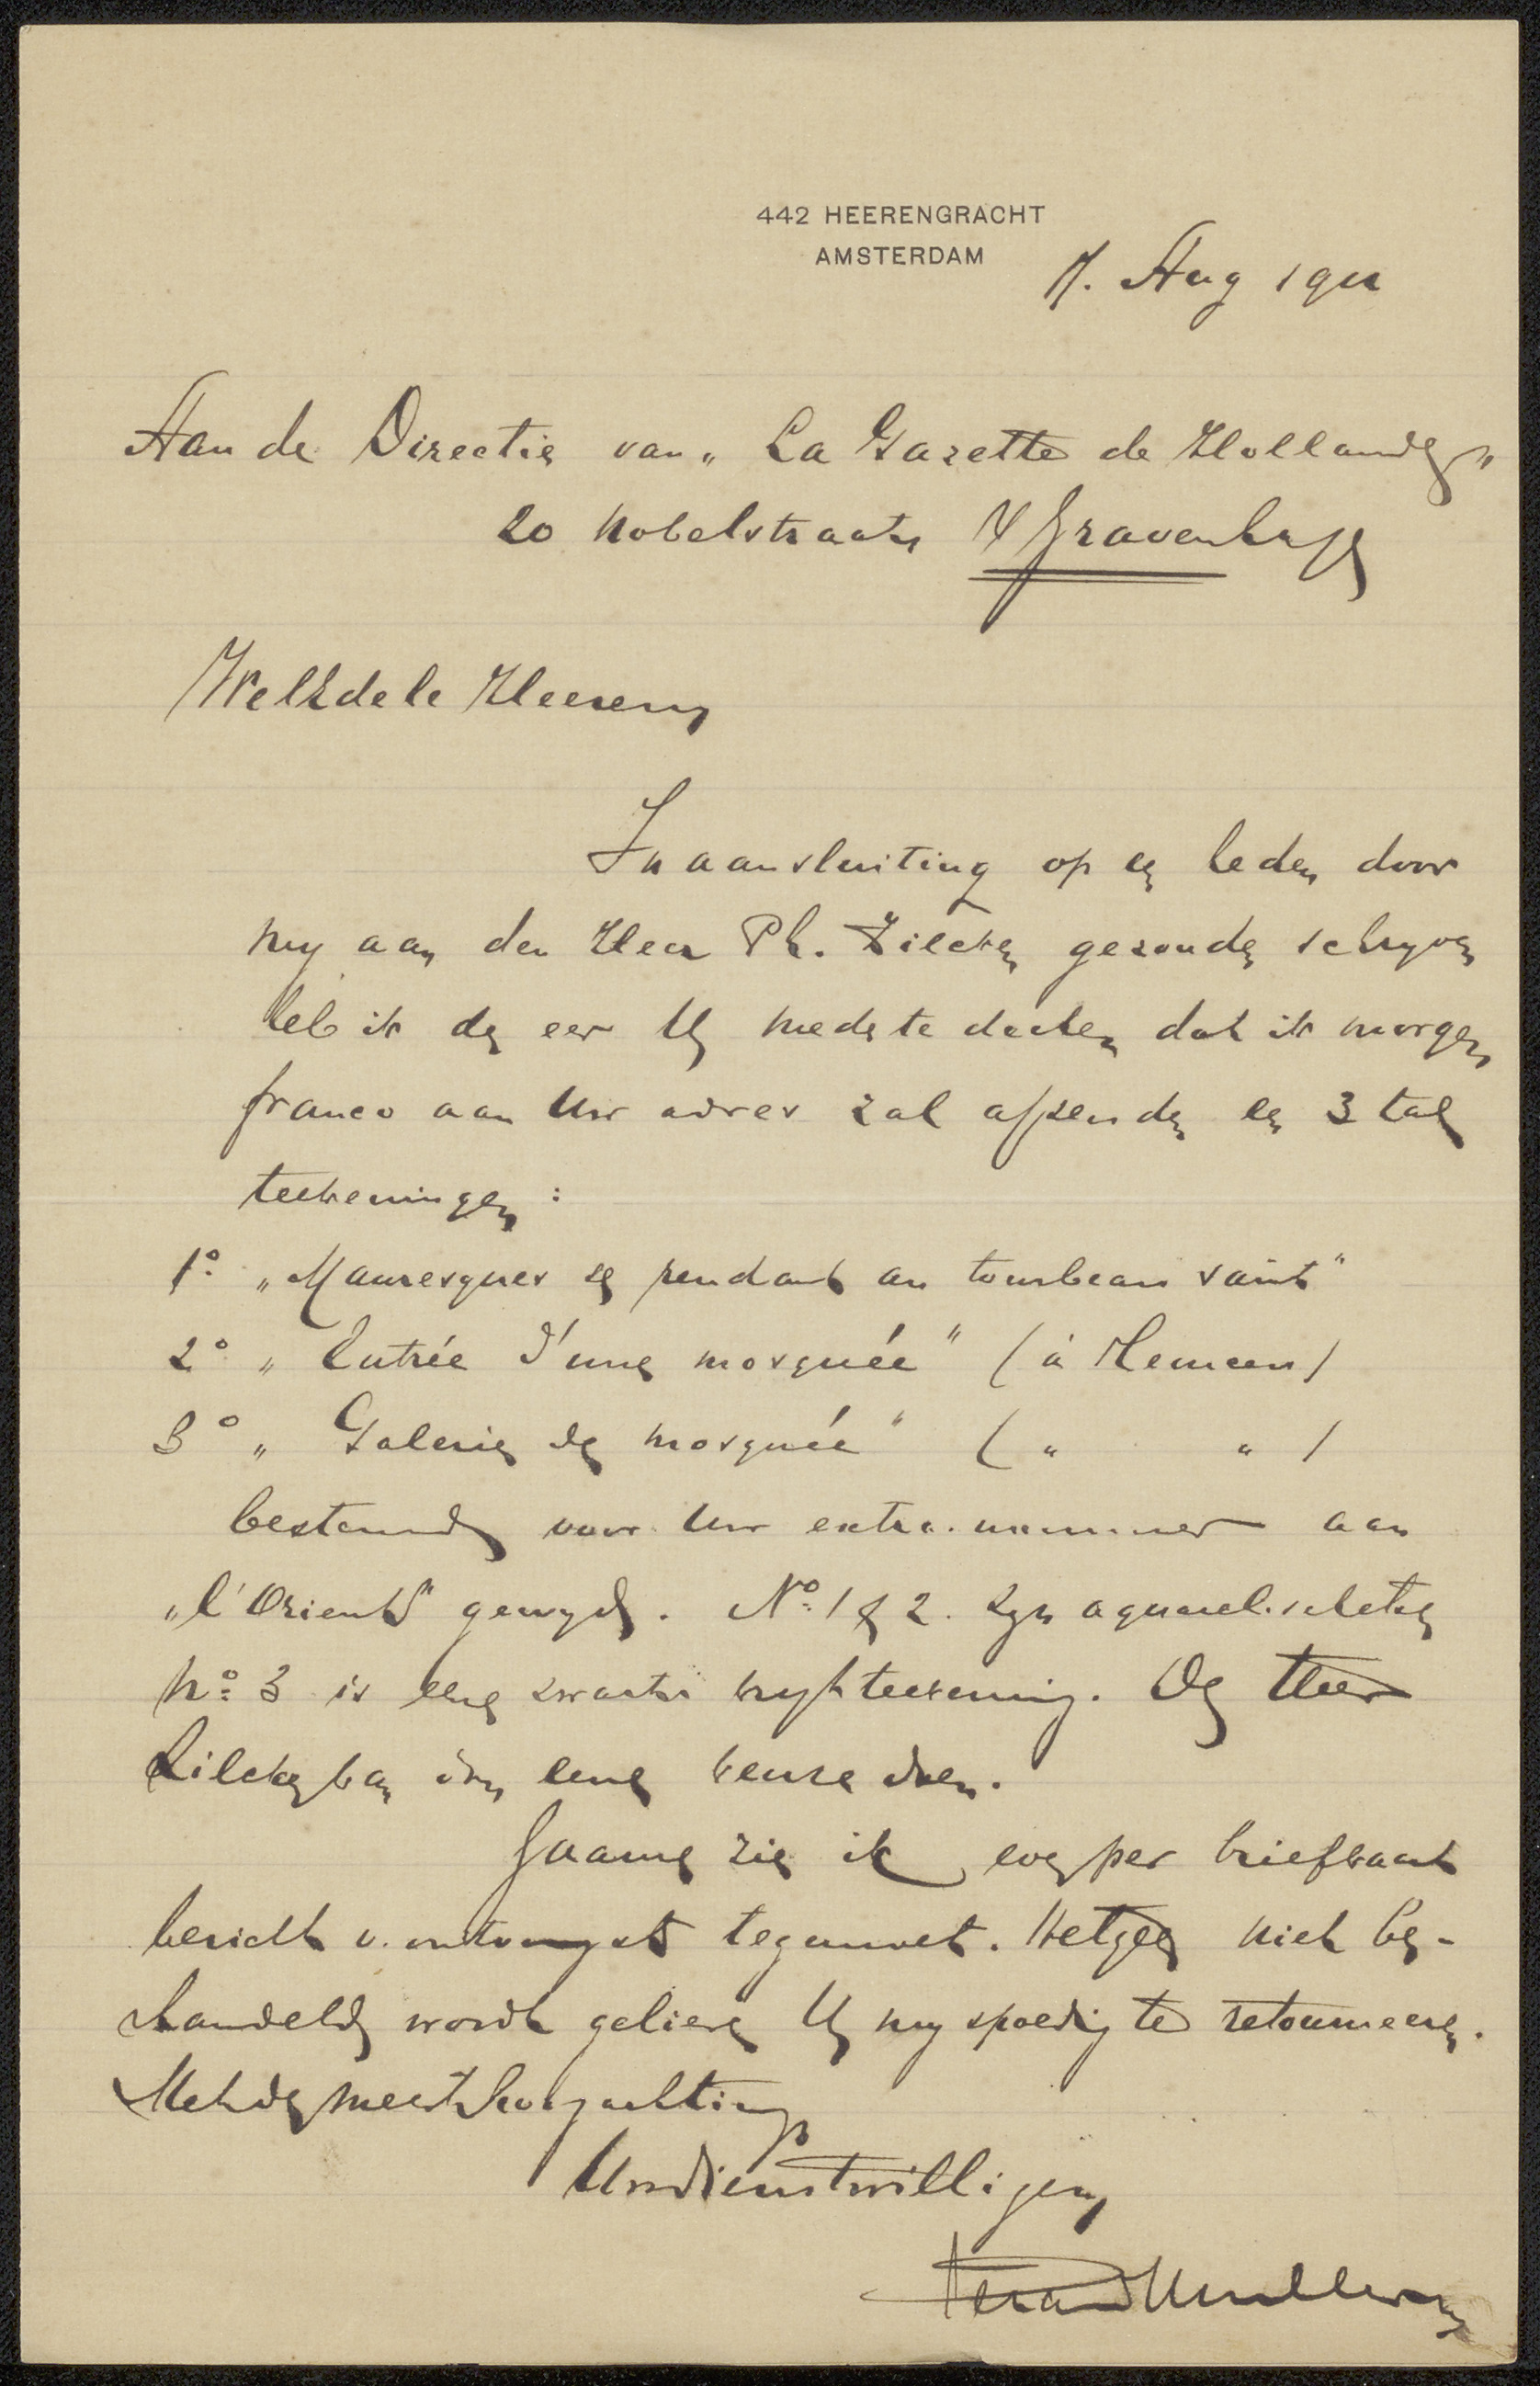 442 HEERENGRACHT
AMSTERDAM
17. Aug 1911
Aan de Directie van „La Gazette de Hollande"
20 Nobelstraat 's Gravenhage
WelEdele Heeren
In aansluiting op een heden door
my aan den Heer Ph. Zilcken gezonden schryven
heb ik de eer U mede te deelen dat ik morgen
franco aan Uw adres zal afzenden een 3 tal
teekeningen:
1° „Mauresques se rendant au tombeau saint"
2° „Entrée d'une mosquée" (à Tlemcen)
3° „Galerie de mosquée" ( " " )
bestemd voor Uw extra-nummer aan
„l'Orient" gewyd. N° 1 & 2. zyn aquarel-schetsen
N° 3 is eene zwarte kryt teekening. De Heer
Zilcken kan dan eene keuze doen.
Gaarne zie ik even per briefkaart
bericht v. ontvangst tegemoet. Hetgeen niet be-
handeld wordt gelieve U my spoedig te retourneeren.
Met de meeste hoogachting
Uw dienstwillige